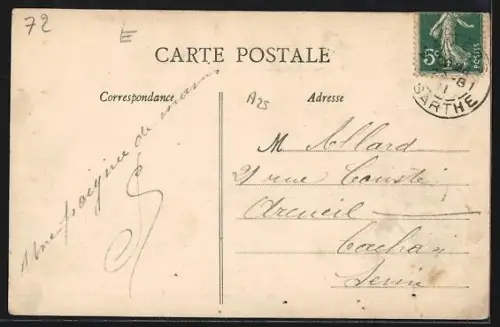 72
E
CARTE POSTALE
Correspondance
A25
Adresse
5c
POSTES
SARTHE
Une poignée de mains
M Allard
21 rue
Arcueil
Cachan
Seine